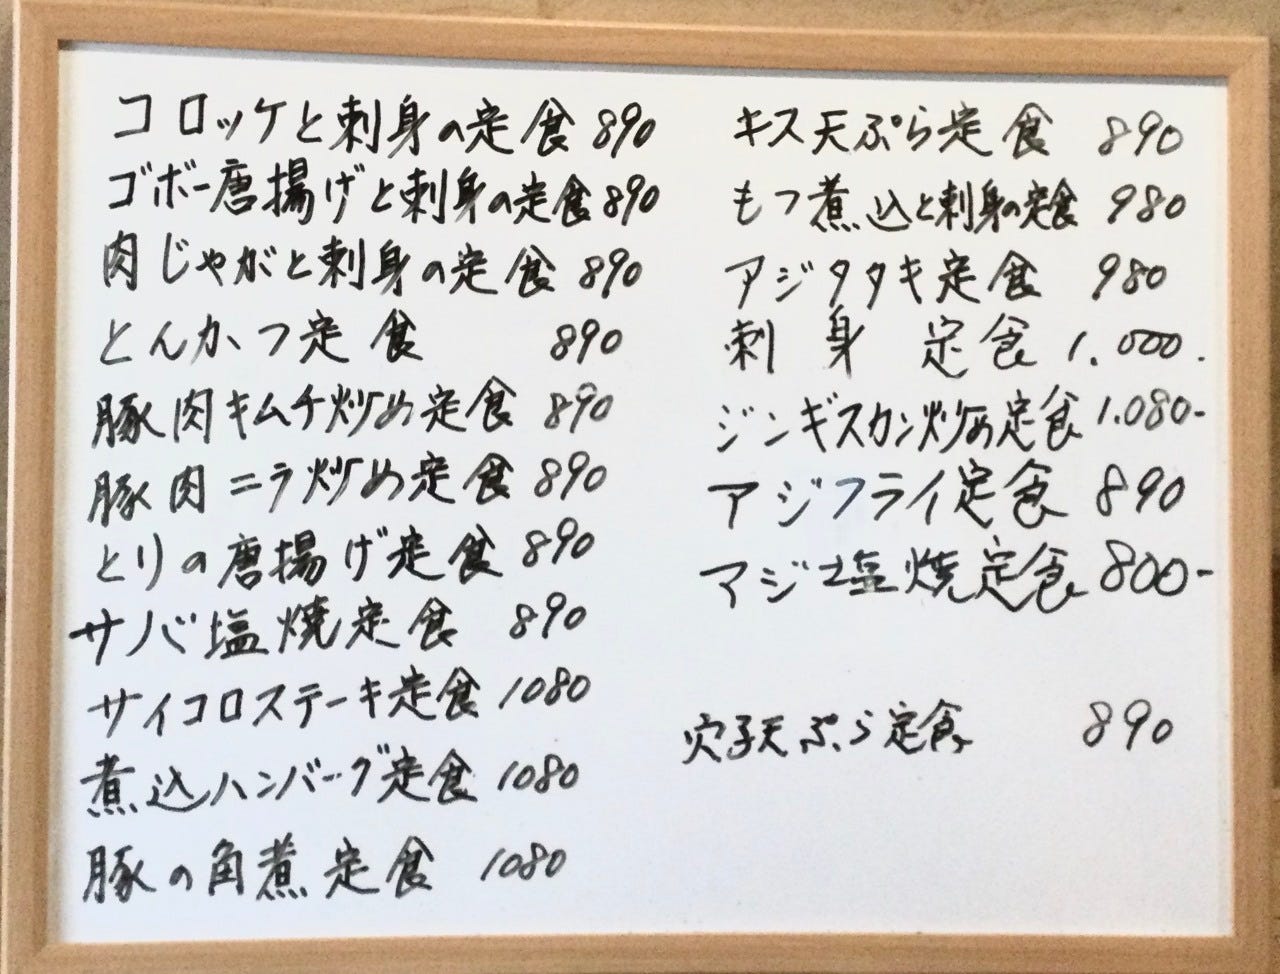 コロッケと刺身の定食 890
ゴボー唐揚げと刺身の定食 890
肉じゃがと刺身の定食 890
とんかつ定食 890
豚肉キムチ炒め定食 890
豚肉ニラ炒め定食 890
とりの唐揚げ定食 890
サバ塩焼定食 890
サイコロステーキ定食 1080
煮込ハンバーグ定食 1080
豚の角煮定食 1080
キス天ぷら定食 890
もつ煮込と刺身の定食 980
アジタタキ定食 980
刺身定食 1.000.
ジンギスカン炒め定食 1.080-
アジフライ定食 890
アジ塩焼定食 800-
穴子天ぷら定食 890